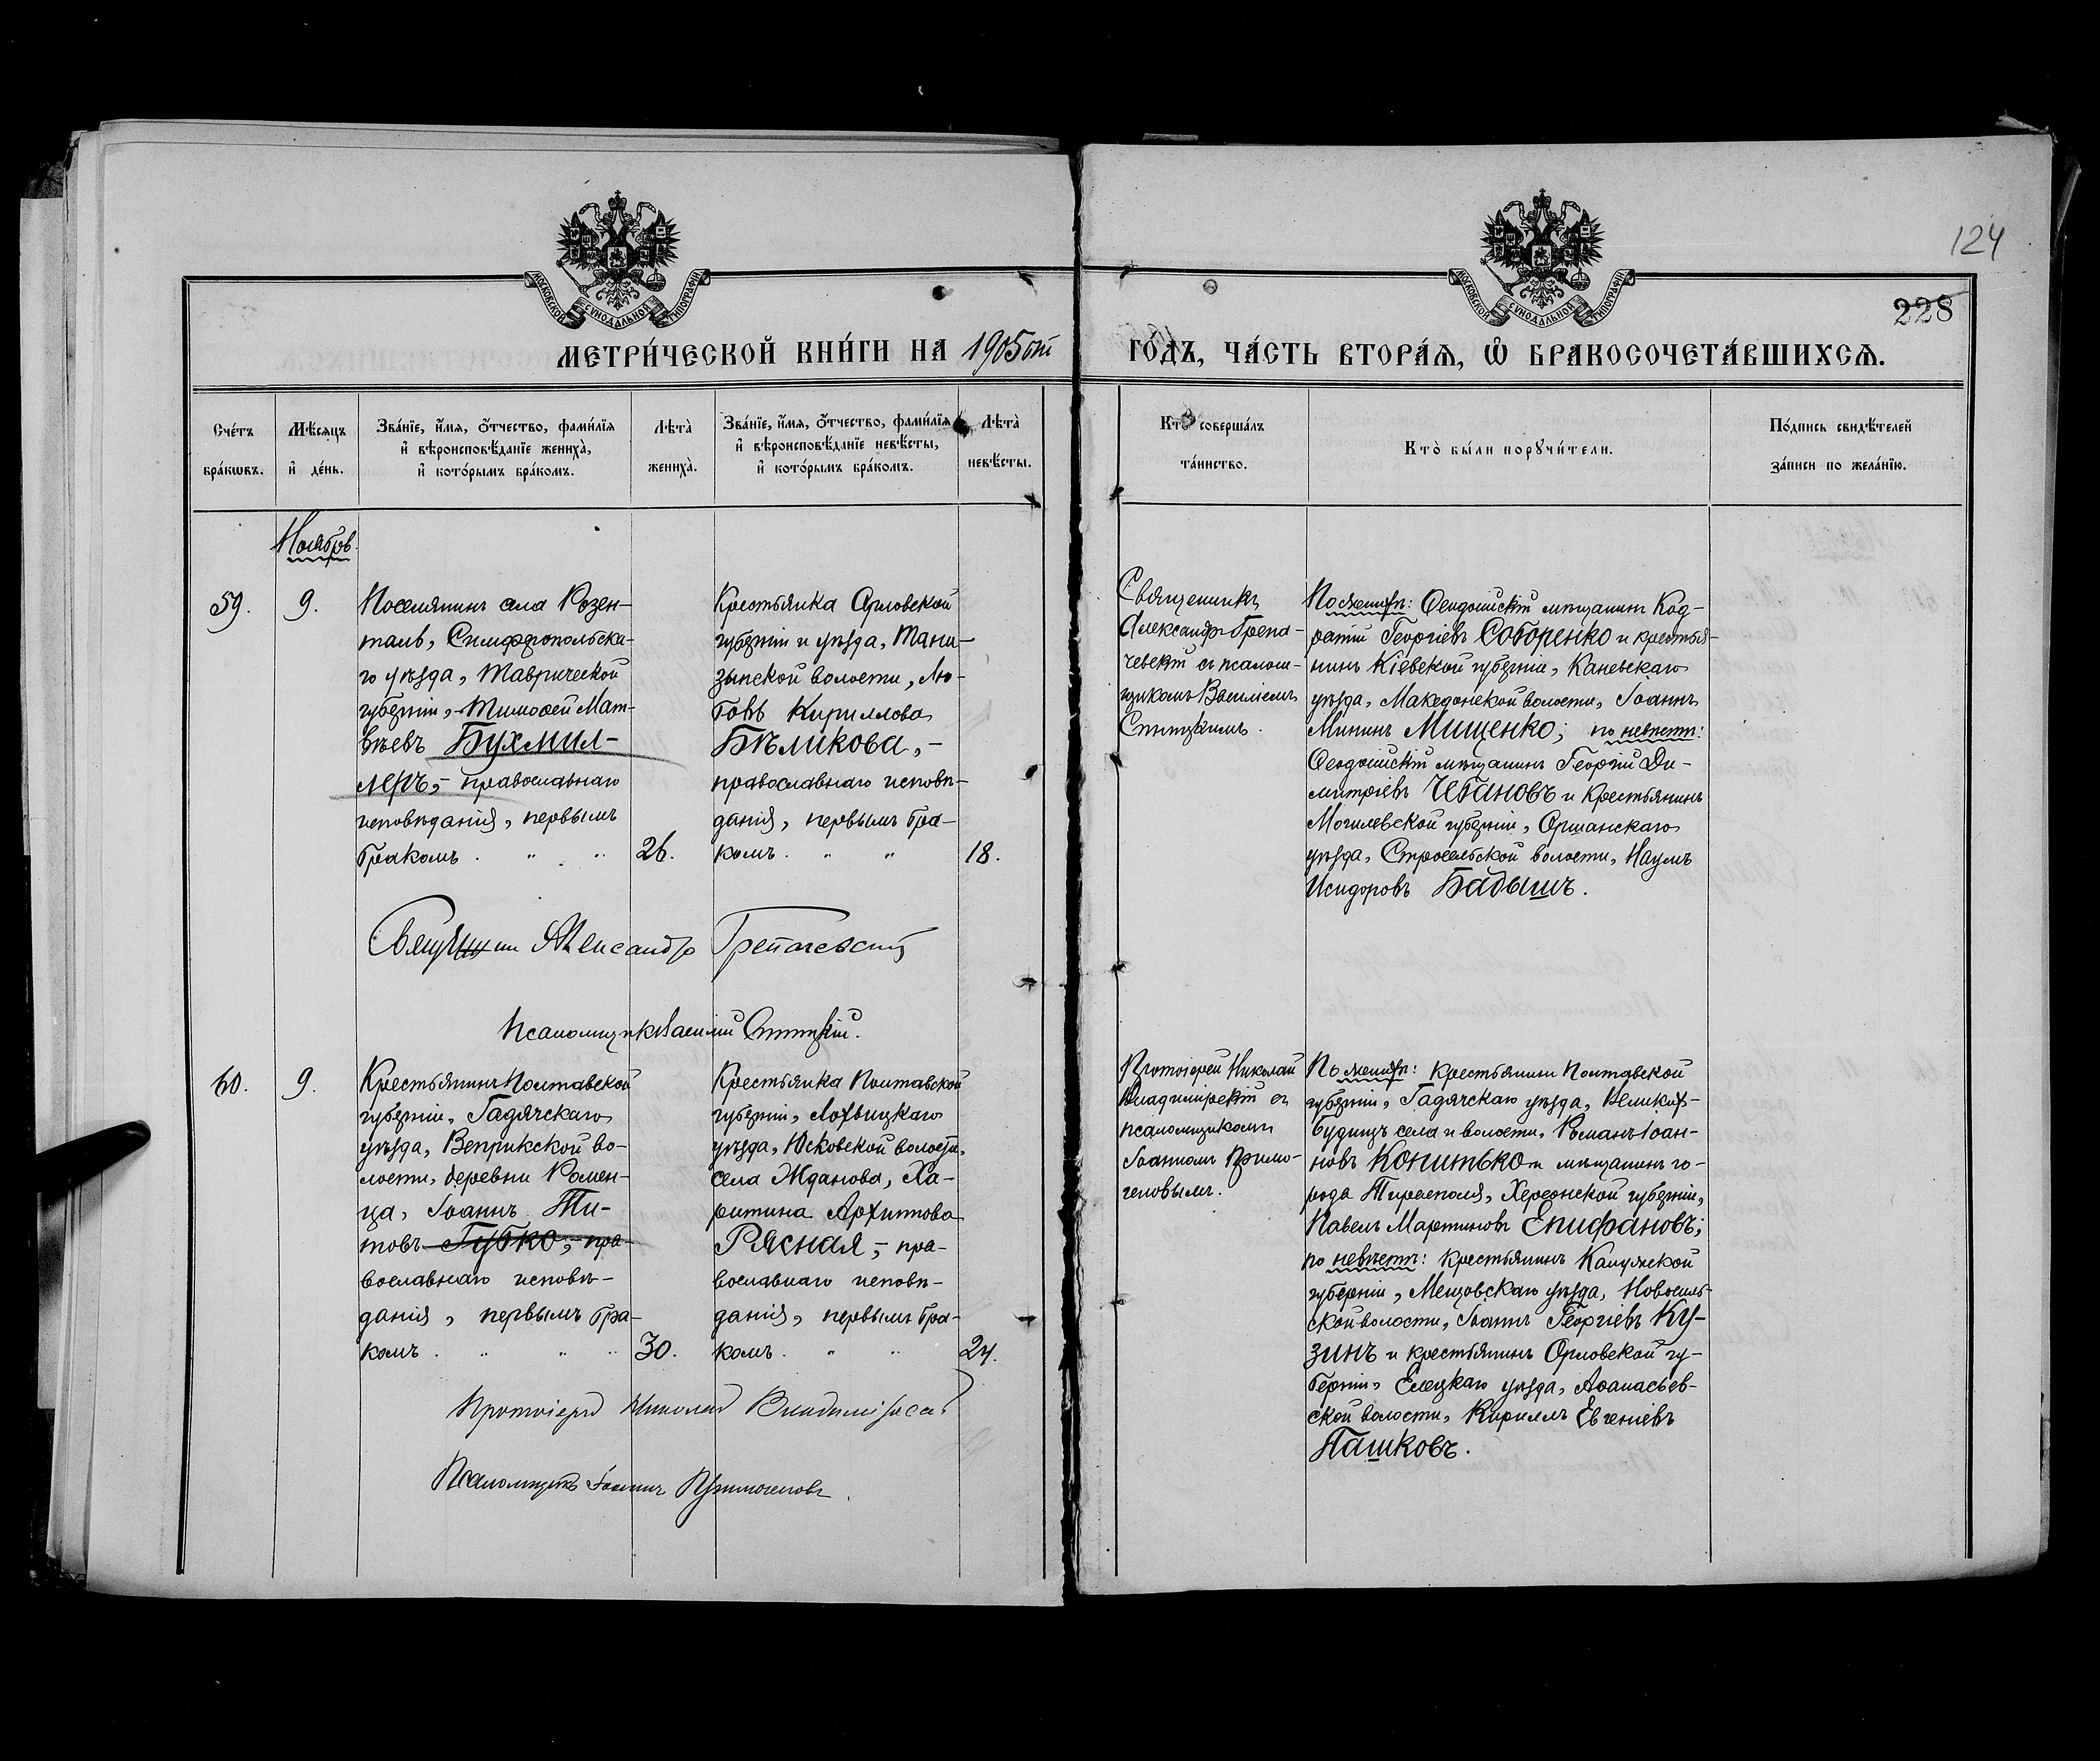 124
228
МОСКОВСКОЙ СѴНОДАЛЬНОЙ ТИПОГРАФІИ
МОСКОВСКОЙ СѴНОДАЛЬНОЙ ТИПОГРАФІИ
МЕТРИ́ЧЕСКОЙ КНИ́ГИ НА 1905ый ГО́ДЪ, ЧА́СТЬ ВТОРА́Я, Ѽ БРАКОСОЧЕТА́ВШИХСѦ.
Сче́тъ
бра́кѡвъ.
Мѣ́сяцъ
и҆ де́нь.
Зва́нїе, и҆́мя, ѻ҆́тчество, фами́лїя
и҆ вѣроисповѣ́данїе жениха̀,
и҆ кото́рымъ бра́комъ.
Лѣта̀
жениха̀.
Зва́нїе, и҆́мя, ѻ҆́тчество, фами́лїя
и҆ вѣроисповѣ́данїе невѣ́сты,
и҆ кото́рымъ бра́комъ.
Лѣта̀
невѣ́сты.
Кто̀ соверша́лъ
та́инство.
Кто̀ бы́ли порꙋчи́тели.
По́дпись свидѣ́телей
за́писи по жела́нїю.
Ноябрь.
59.
9.
Поселянинъ села Розен-
таль, Симферопольска-
го уѣзда, Таврической
губерніи, Тимоѳей Мат-
вѣевъ Бухмил-
леръ,- православнаго
исповѣданія, первымъ
бракомъ. " "
26.
Крестьянка Орловской
губерніи и уѣзда,
зынской волости, Лю-
бовь Кириллова
Бѣликова,-
православнаго исповѣ-
данія, первымъ бра-
комъ. " "
18.
Священникъ
Александръ Грепа-
чевскій съ псалом-
щикомъ Василіемъ
По женихѣ: Ѳеодосійскій мѣщанинъ Код-
ратій Георгіевъ Соборенко и крестья-
нинъ Кіевской губерніи, Каневскаго
уѣзда, Македонской волости, Іоаннъ
Мининъ Мищенко; по невѣстѣ:
Ѳеодосійскій мѣщанинъ Георгій Ди-
митріевъ Чебановъ и крестьянинъ
Могилевской губерніи, Оршанскаго
уѣзда, Стросельской волости, Наумъ
Исидоровъ Бадышъ.
Александръ Грепачевскій
Псаломщикъ Василій
60.
9.
Крестьянинъ Полтавской
губерніи, Гадячскаго
уѣзда, Веприкской во-
лости, деревни Ромен-
ца, Іоаннъ Ти-
товъ Губко,- пра-
вославнаго исповѣ-
данія, первымъ бра-
комъ. " " "
30.
Крестьянка Полтавской
губерніи, Лохвицкаго
уѣзда, Юсковской волости,
села Жданова, Ха-
ритина Архиппова
Рясная,- пра-
вославнаго исповѣ-
данія, первымъ бра-
комъ. " "
24.
Протоіерей Николай
Владимірскій съ
псаломщикомъ
Іоанномъ Примо-
геновымъ.
По женихѣ: крестьянинъ Полтавской
губерніи, Гадячскаго уѣзда, Великихъ-
Будищъ села и волости, Романъ Іоан-
новъ Копитько и мѣщанинъ го-
рода Тирасполя, Херсонской губерніи,
Павелъ Мартиновъ Епифановъ;
по невѣстѣ: крестьянинъ Калужской
губерніи, Мещовскаго уѣзда, Новосель-
ской волости, Іоаннъ Георгіевъ Ку-
зинъ и крестьянинъ Орловской гу-
берніи, Елецкаго уѣзда, Аѳанасьев-
ской волости, Кириллъ Евгеніевъ
Пашковъ.
Протоіерей Николай Владимірскій
Псаломщикъ Іоаннъ Примогеновъ.